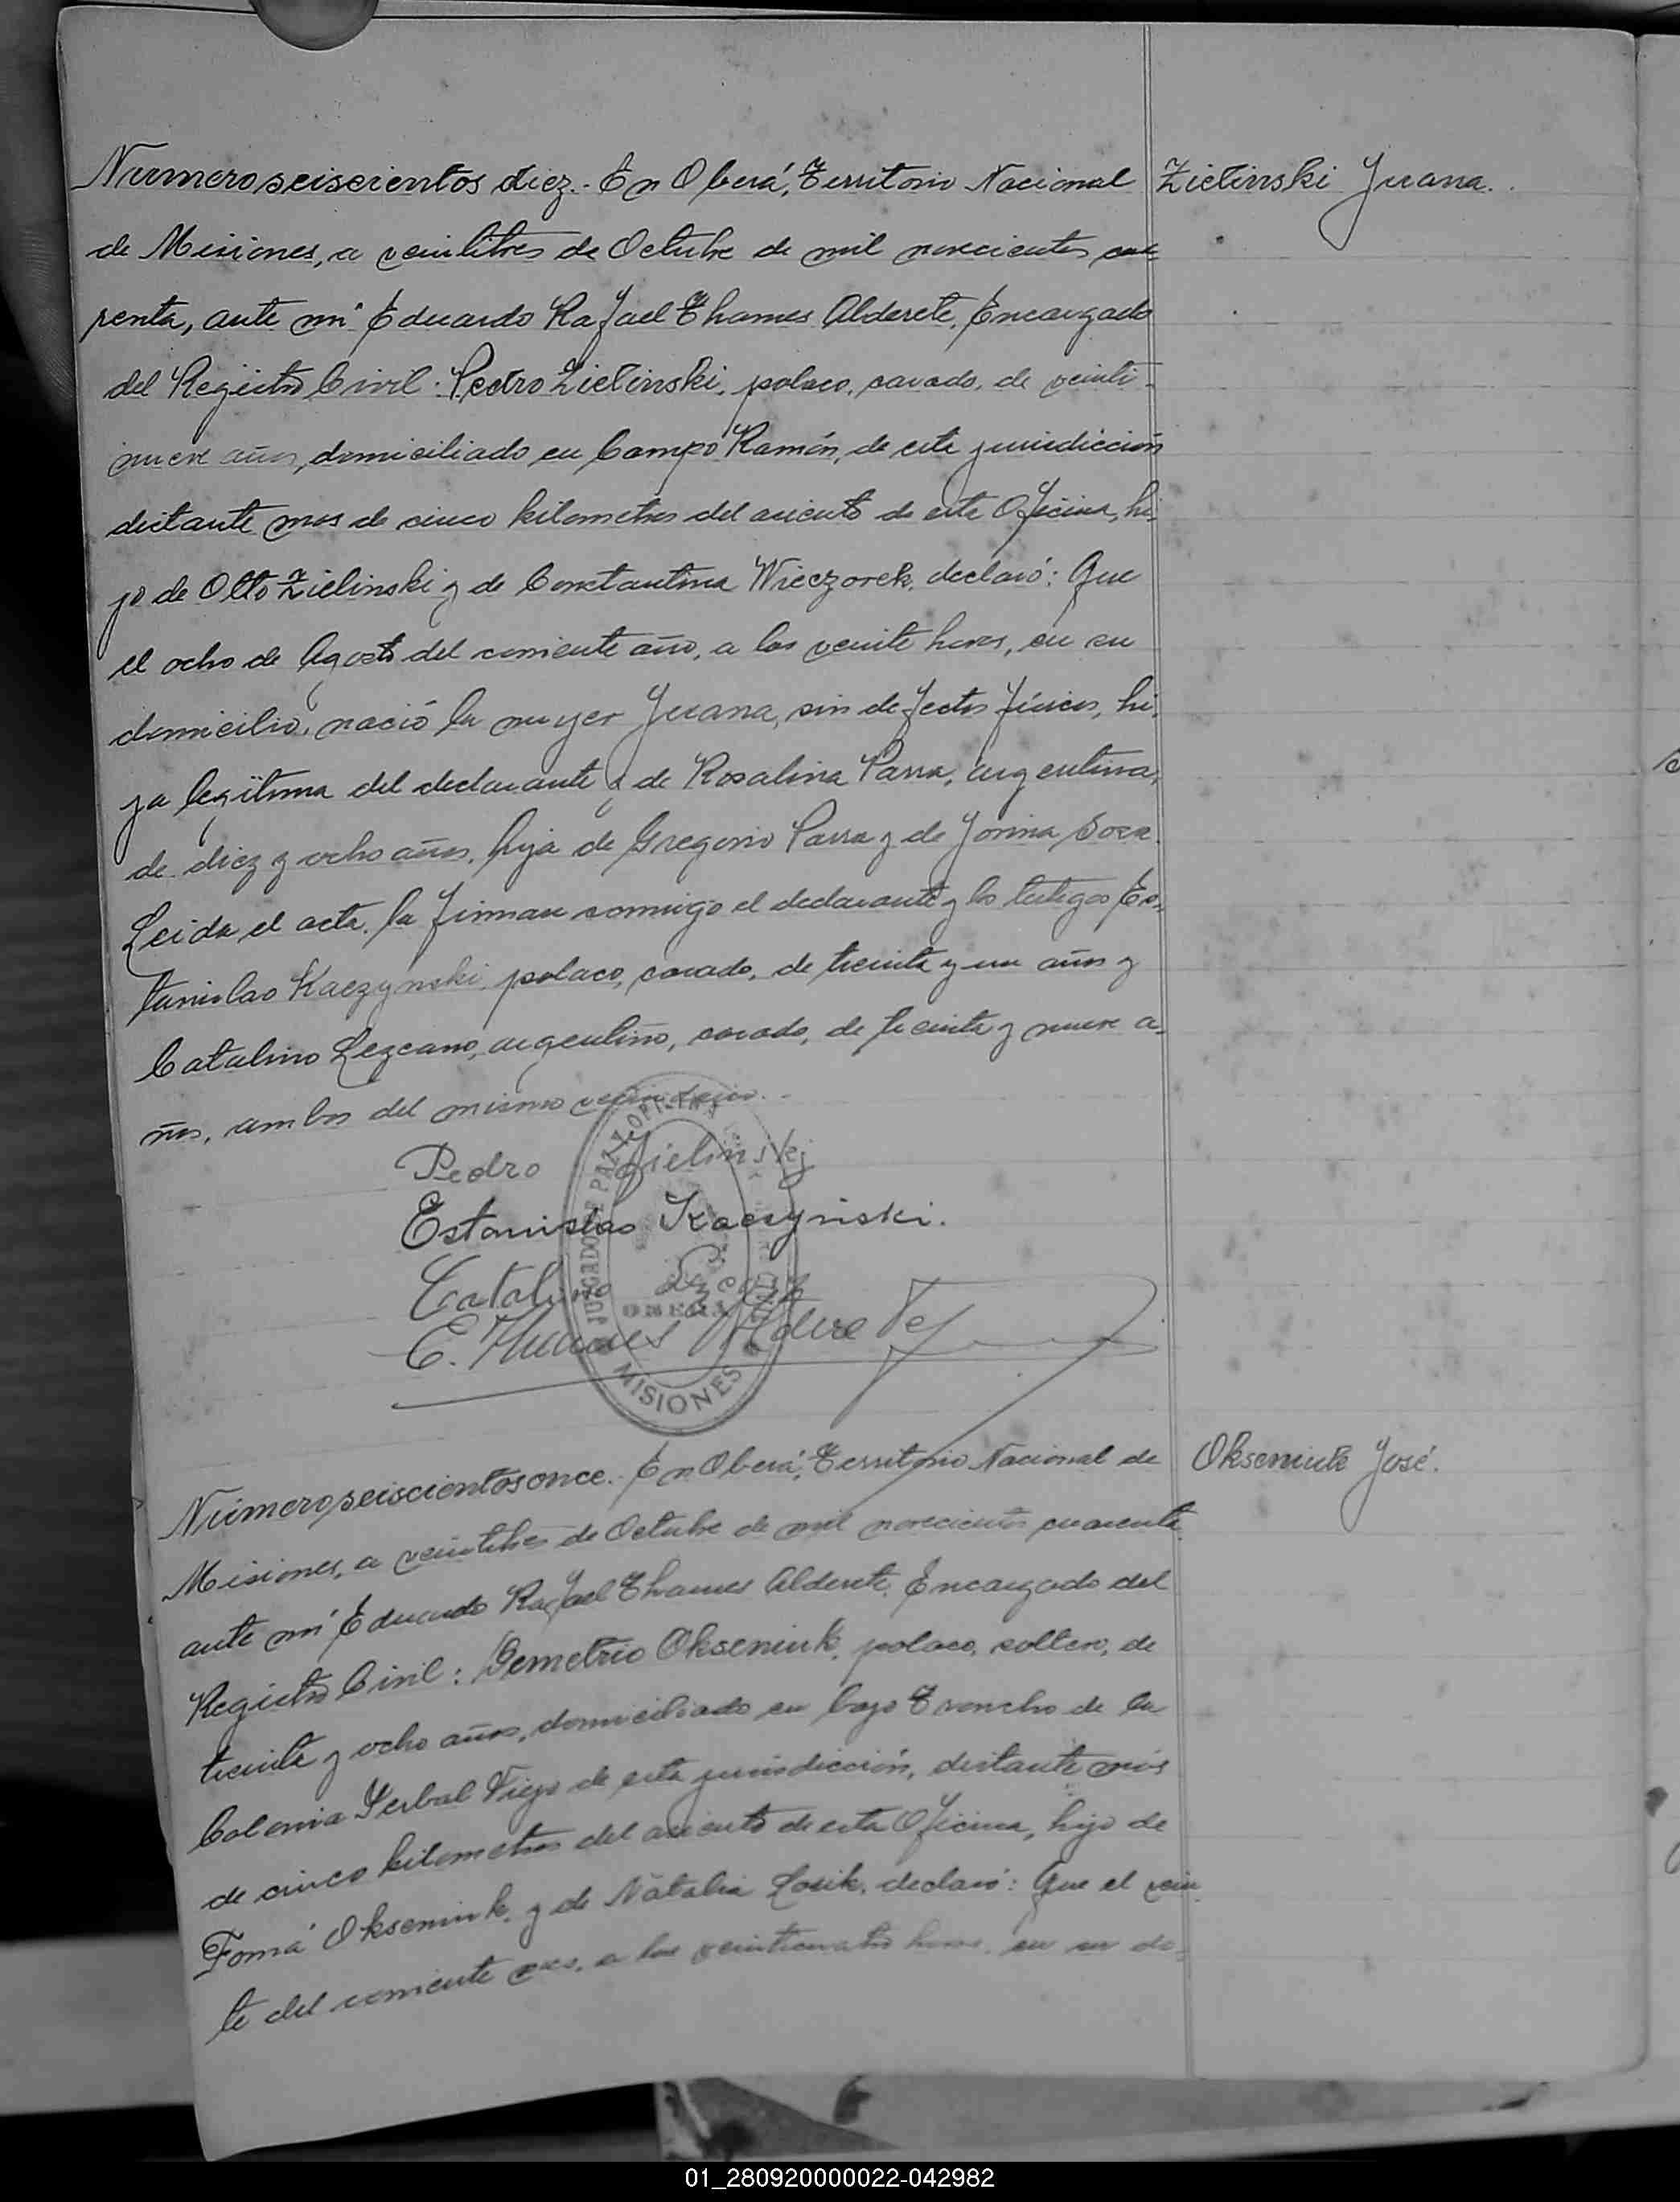 Numero seiscientos diez.- En Oberá, Territorio Nacional
Zielinski Juana.
de Misiones, a veintitres de Octubre de mil novecientos cua-
renta, ante mi Eduardo Rafael Thames Alderete, Encargado
del Registro Civil: Pedro Zielinski, polaco, casado, de veinti-
nueve años, domiciliado en Campo Ramón, de esta jurisdicción
distante mas de cinco kilometros del asiento de esta Oficina, hi-
jo de Otto Zielinski y de Constantina Wieczorek, declaró: Que
el ocho de Agosto del corriente año, a las veinte horas, en su
domicilio, nació la mujer Juana, sin defectos físicos, hi-
ja legitima del declarante y de Rosalina Parra, argentina,
de diez y ocho años, hija de Gregorio Parra y de
Leida el acta, la firman conmigo el declarante y los testigos Es-
tanislao Kaczynski, polaco, casado, de treinta y un años y
Catalino Lezcano, argentino, casado, de treinta y nueve a-
ños, ambos del mismo vecindario.-
Pedro Zielinskij
Estanislao Kaczyński.
Catalino Lezcano
E. Thames Alderete
JUZGADO DE PAZ
OBERA
MISIONES
Número seiscientos once.- En Oberá, Territorio Nacional de
Okseniuk José.
Misiones, a veintitres de Octubre de mil novecientos cuarenta
ante mí Eduardo Rafael Thames Alderete, Encargado del
Registro Civil: Demetrio Okseniuk, polaco, soltero, de
treinta y ocho años, domiciliado en bajo Troncho de la
Colonia Yerbal Viejo de esta jurisdicción, distante más
de cinco kilometros del asiento de esta Oficina, hijo de
Fomá Okseniuk, y de Natalia Losik, declaró: Que el vein-
te del corriente mes, a las veinticuatro horas, en su do-
01_280920000022-042982